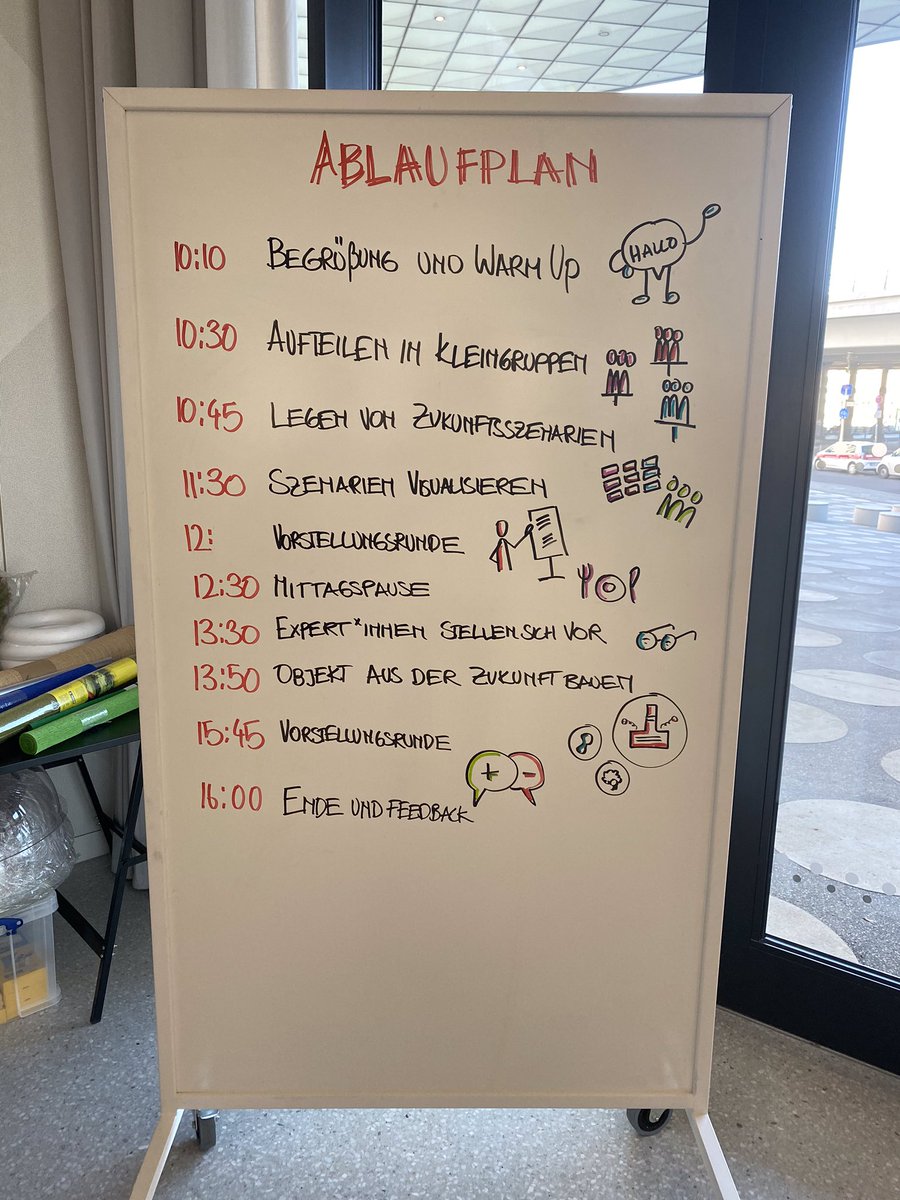 ABLAUFPLAN
10:10 BEGRÜßUNG UND WARM UP
HALLO
10:30 AUFTEILEN IN KLEINGRUPPEN
10:45 LEGEN VON ZUKUNFTSSZENARIEN
11:30 SZENARIEN VISUALISIEREN
12: VORSTELLUNGSRUNDE
12:30 MITTAGSPAUSE
13:30 EXPERT*INNEN STELLEN SICH VOR
13:50 OBJEKT AUS DER ZUKUNFT BAUEN
15:45 VORSTELLUNGSRUNDE
+ -
16:00 ENDE UND FEEDBACK